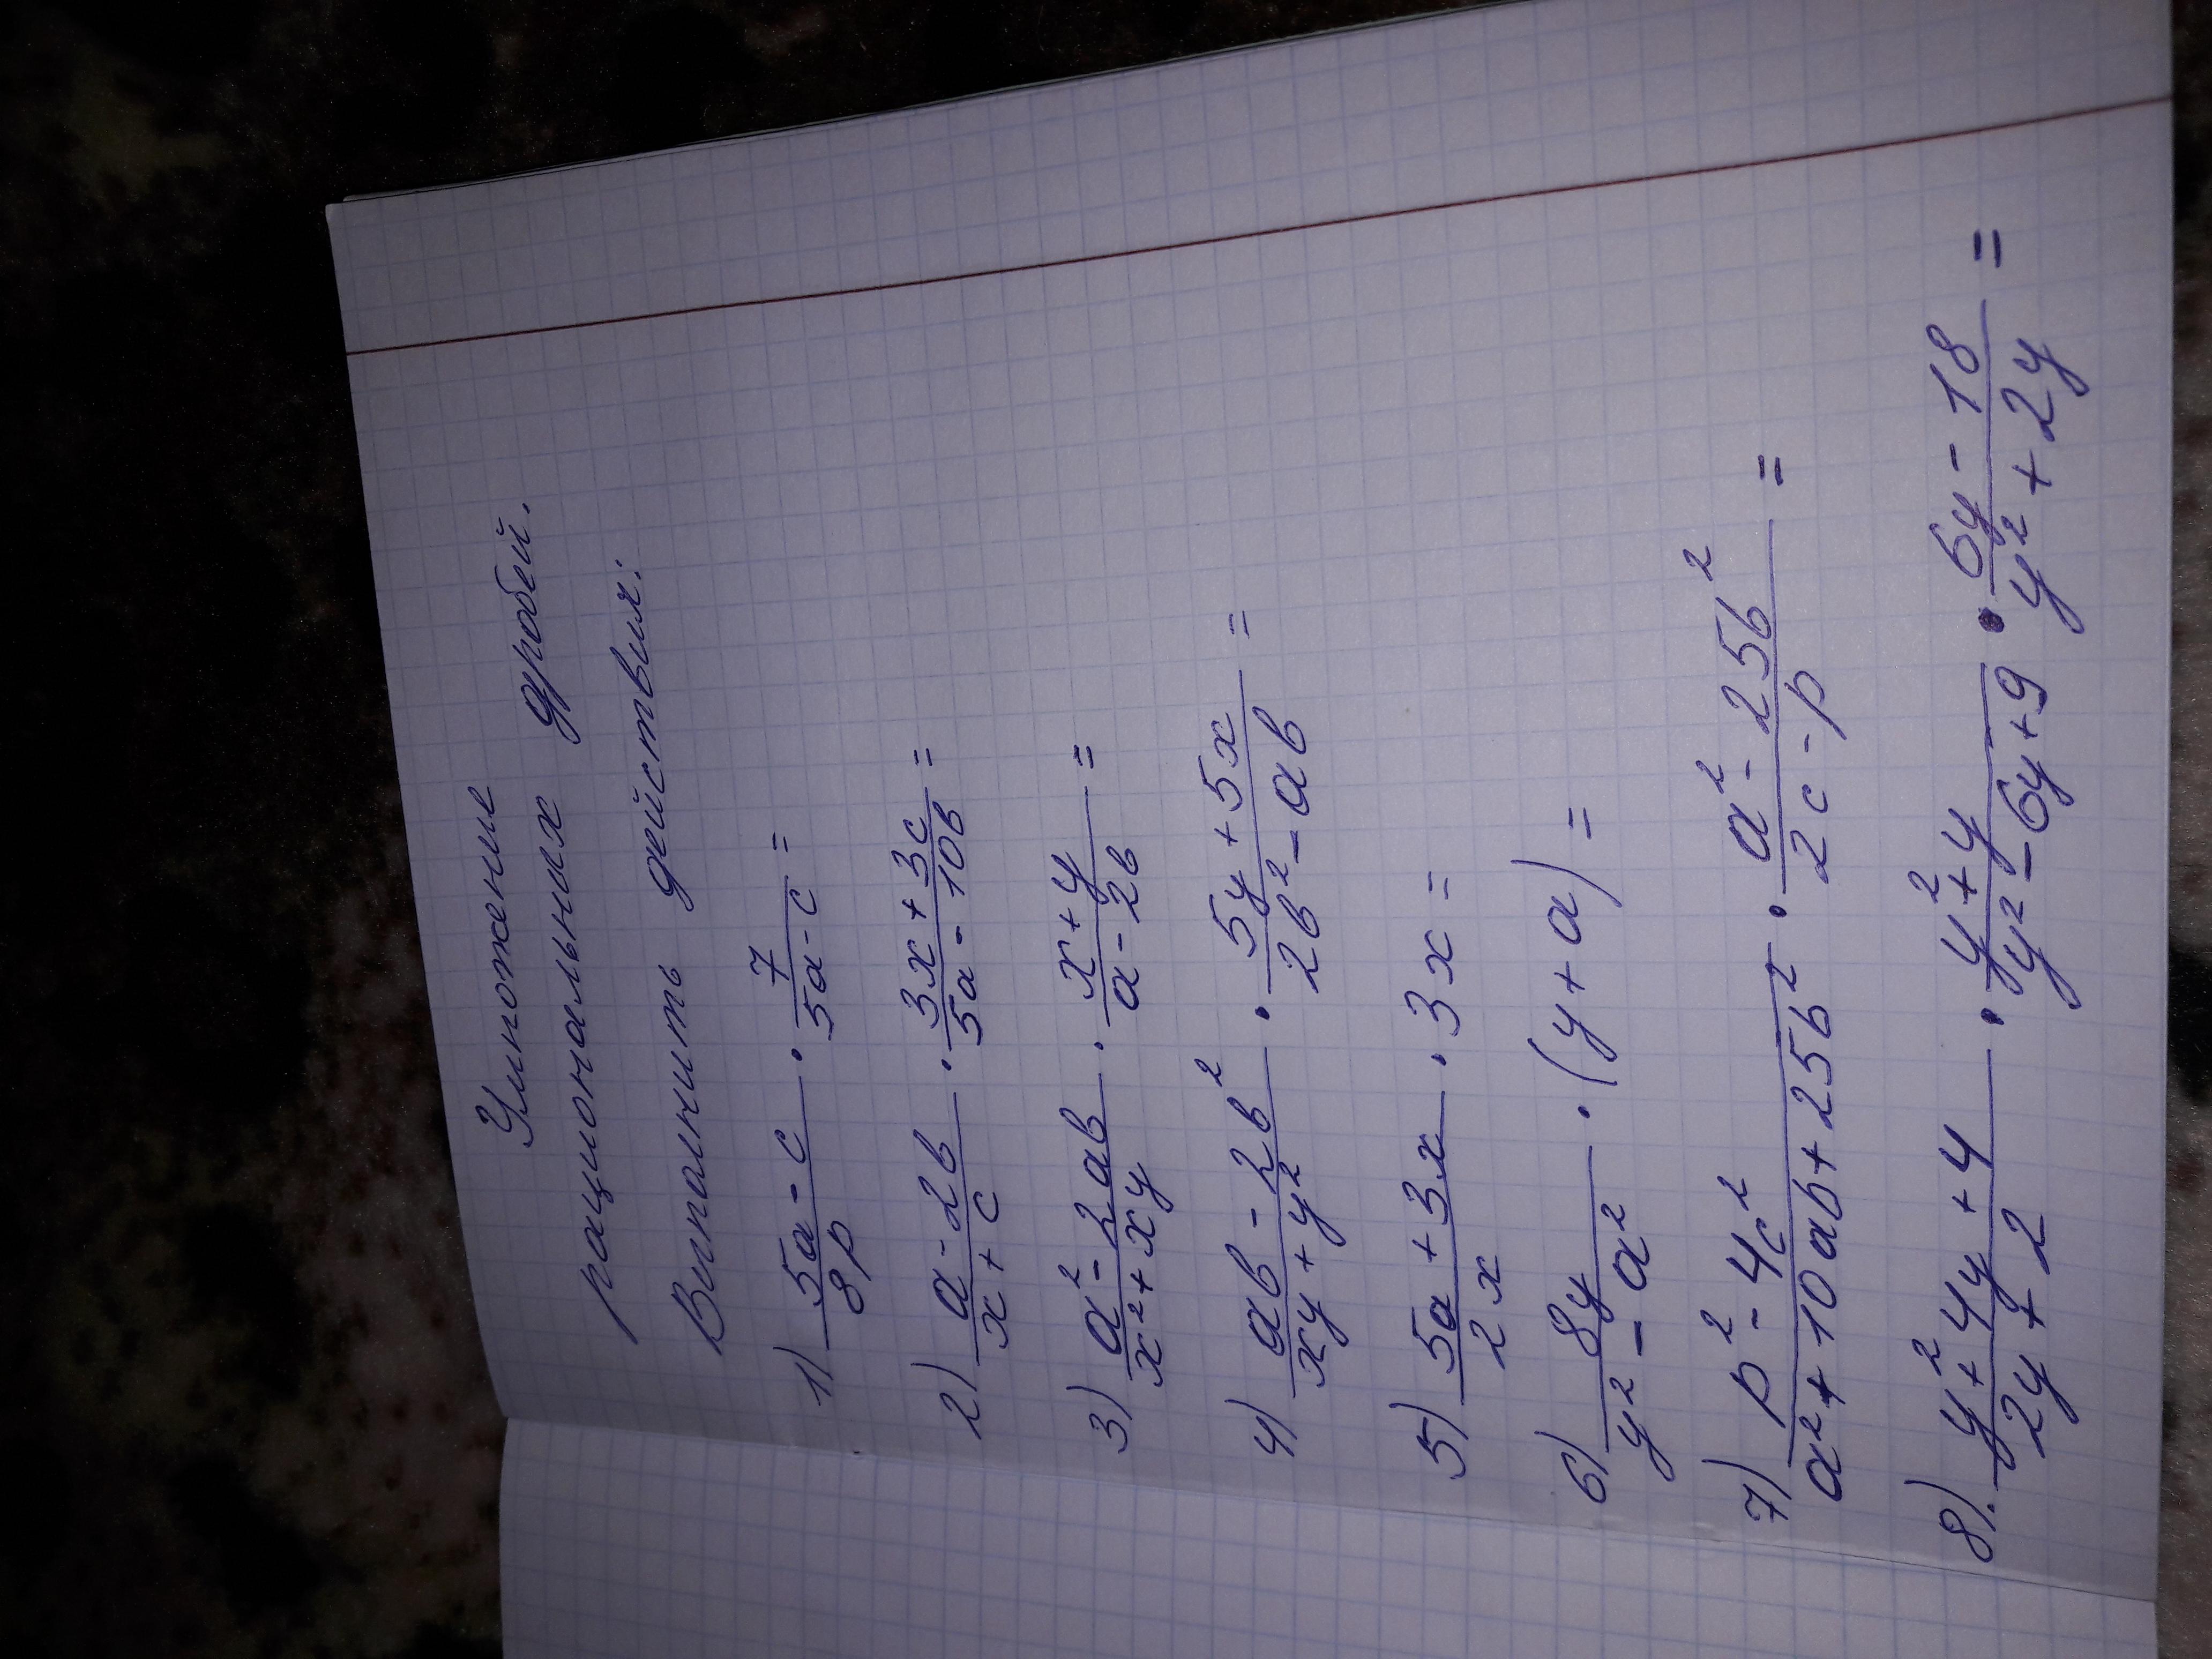 Умножение
рациональных дробей.
Выполнить действия:
1) (5a - c)/(8p) · 7/(5a - c) =
2) (a - 2b)/(x + c) · (3x + 3c)/(5a - 10b) =
3) (a² - 2ab)/(x² + xy) · (x + y)/(a - 2b) =
4) (ab - 2b²)/(xy + y²) · (5y + 5x)/(2b² - ab) =
5) (5a + 3x)/(2x) · 3x =
6) 8y/(y² - a²) · (y + a) =
7) (p² - 4c²)/(a² + 10ab + 25b²) · (a² - 25b²)/(2c - p) =
8). (y² + 4y + 4)/(2y + 2) · (y² + y)/(y² - 6y + 9) · (6y - 18)/(y² + 2y) =